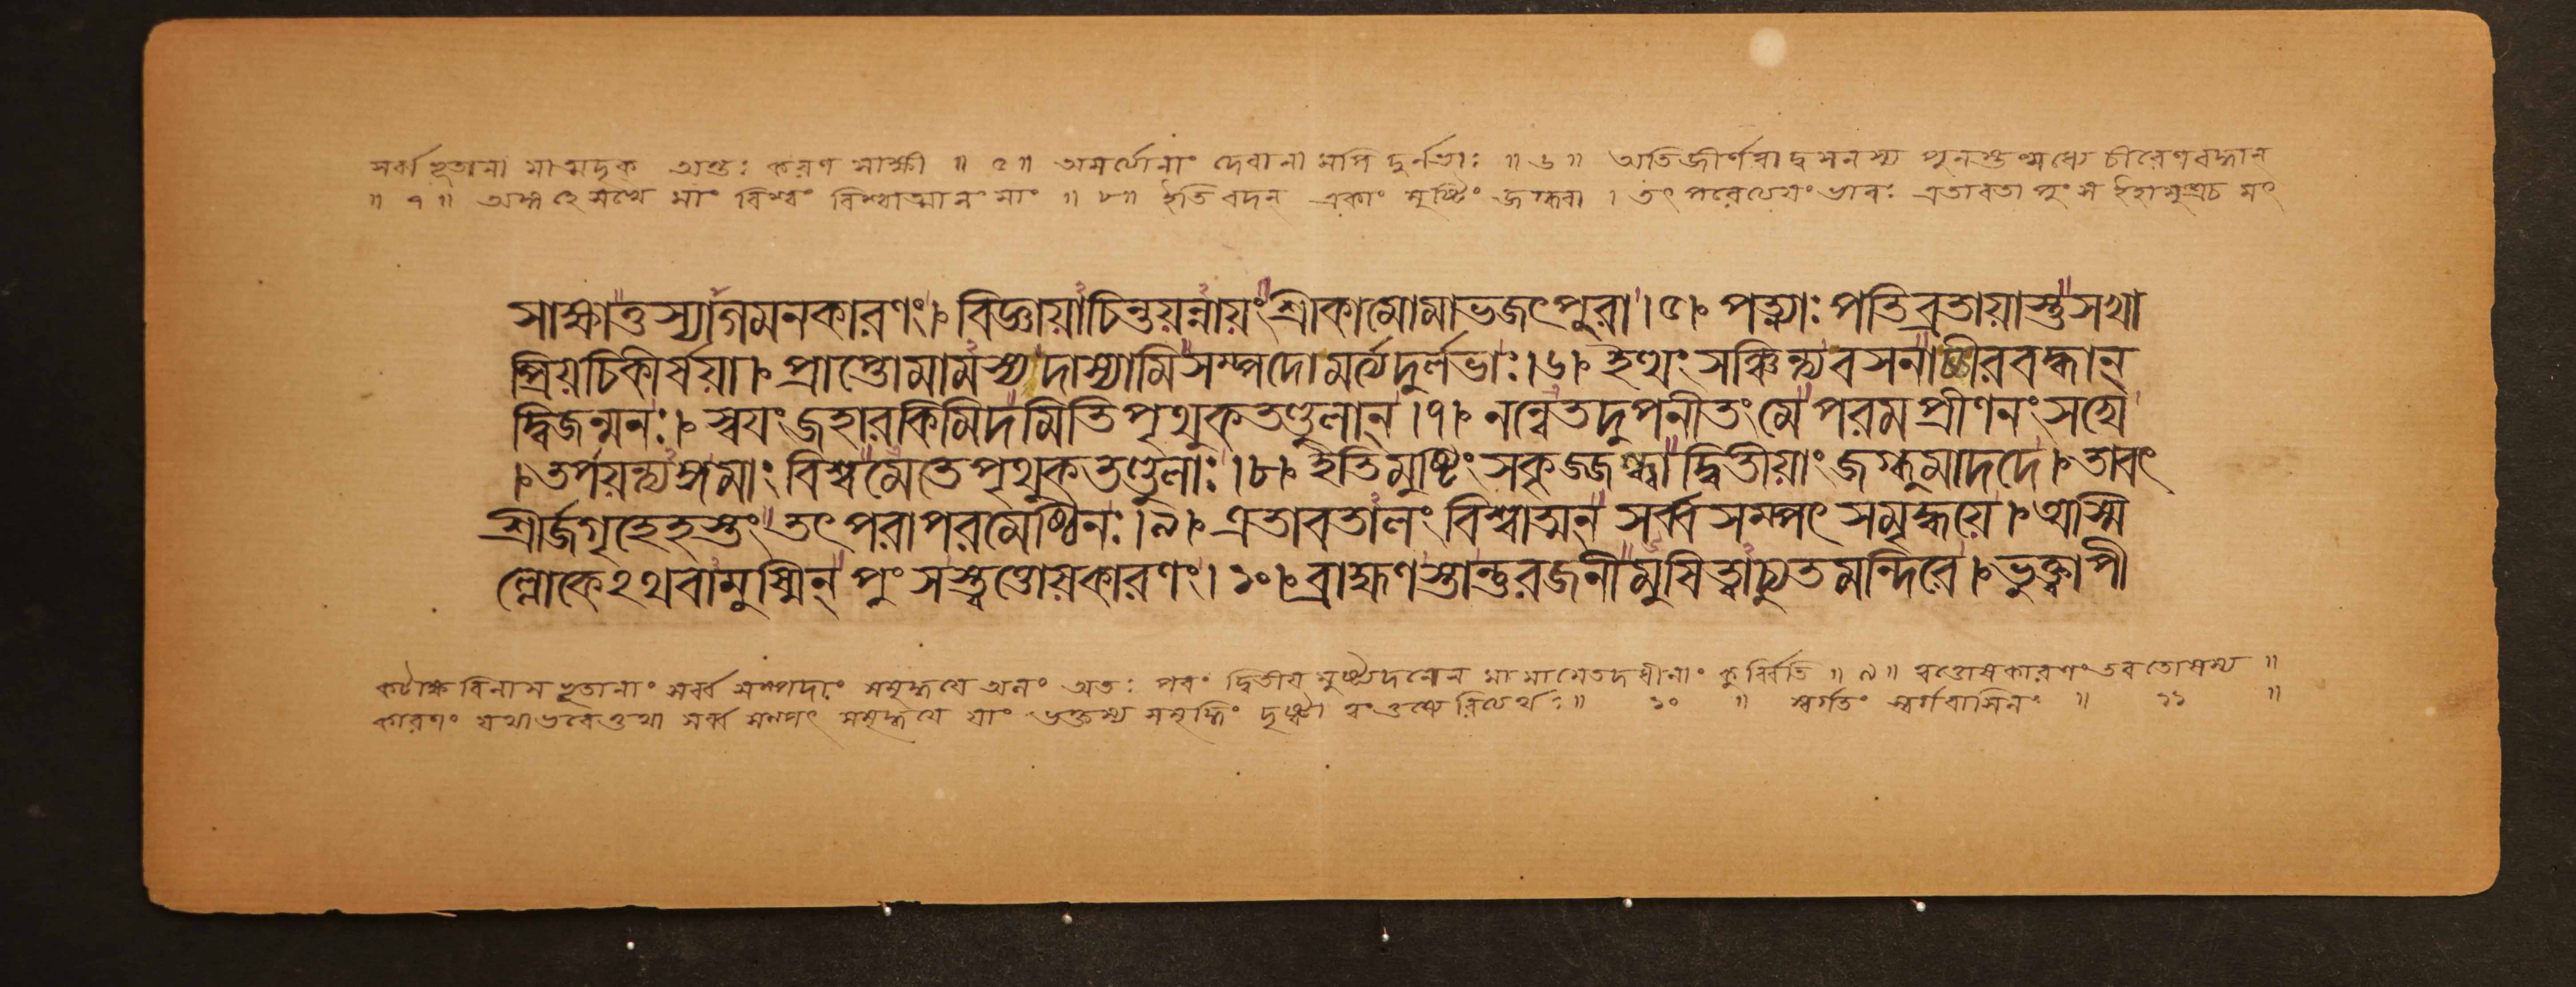 সর্ব্বভূতানা মাত্মদৃক্ অন্তঃ করণ সাক্ষী ॥ ৫॥ অমর্ত্যানাং দেবানা মপি দুর্লভাঃ ॥ ৬॥ অতিজীর্ণ পুনস্তন্মধ্যে চীরেণবদ্ধান্
॥ ৭ ॥ অঙ্গহে সখে মাং বিশ্বং বিশ্বাত্মানং মাং ॥ ৮॥ ইতি বদন্ একাং মুষ্টিং জগ্ধবা । তৎ পরেত্যেয়ংভাবঃ এতাবতা পুংস ইহামুত্রচ সৎ
সাক্ষাত্তস্যাগমনকারণং।৮ বিজ্ঞায়াচিন্তয়ন্নায়ংশ্রীকামোমাভজৎপুরা।৫৮ পত্ন্যাঃপতিব্রতায়াস্তুসখা
প্রিয়চিকীর্ষয়া।৮ প্রাপ্তোমামস্যদাস্যামিসম্পদোমর্ত্যদুর্লভাঃ।৬৮ ইত্থংসঞ্চিন্ত্যবসনাচ্চীরবদ্ধান্
দ্বিজন্মনঃ।৮ স্বয়ংজহারকিমিদমিতিপৃথুকতণ্ডুলান্।৭৮ নন্বেতদুপনীতংমেপরমপ্রীণনংসখে
।৮তর্পয়ন্ত্যঙ্গমাংবিশ্বমেতেপৃথুকতণ্ডুলাঃ।৮৮ ইতিমুষ্টিংসকৃজ্জগ্ধ্বাদ্বিতীয়াংজগ্ধুমাদদে।৮তাবৎ
শ্রীর্জগৃহেহস্তংতৎপরাপরমেষ্ঠিনঃ।৯৮ এতাবতালংবিশ্বাত্মন্সর্ব্বসম্পৎসমৃদ্ধয়ে।৮অস্মি
ল্লোকেঽথবামুষ্মিন্পুংসস্ত্বত্তোষকারণং।১০৮ব্রাহ্মণস্তান্তুরজনীমুষিত্বাচ্যুতমন্দিরে।৮ভুক্ত্বাপী
কটাক্ষবিলাস ভূতানাং সর্ব্ব সম্পদাং সমৃদ্ধয়ে অলং অতঃ পরং দ্বিতীয় মুষ্ট্যদনেন মা মামেতদধীনাং কুর্ব্বিতি ॥ ৯॥ ত্বত্তোষকারণংতবতোষস্য ॥
কারণং যথাভবেত্তথা সর্ব্ব সম্পৎ সমৃদ্ধয়ে ভক্তস্য সমৃদ্ধিং দৃষ্ট্বা ত্বংতুষ্যেরিত্যর্থঃ॥ ১০ ॥ স্বর্গতং স্বর্গবাসিনং ॥ ১১ ॥